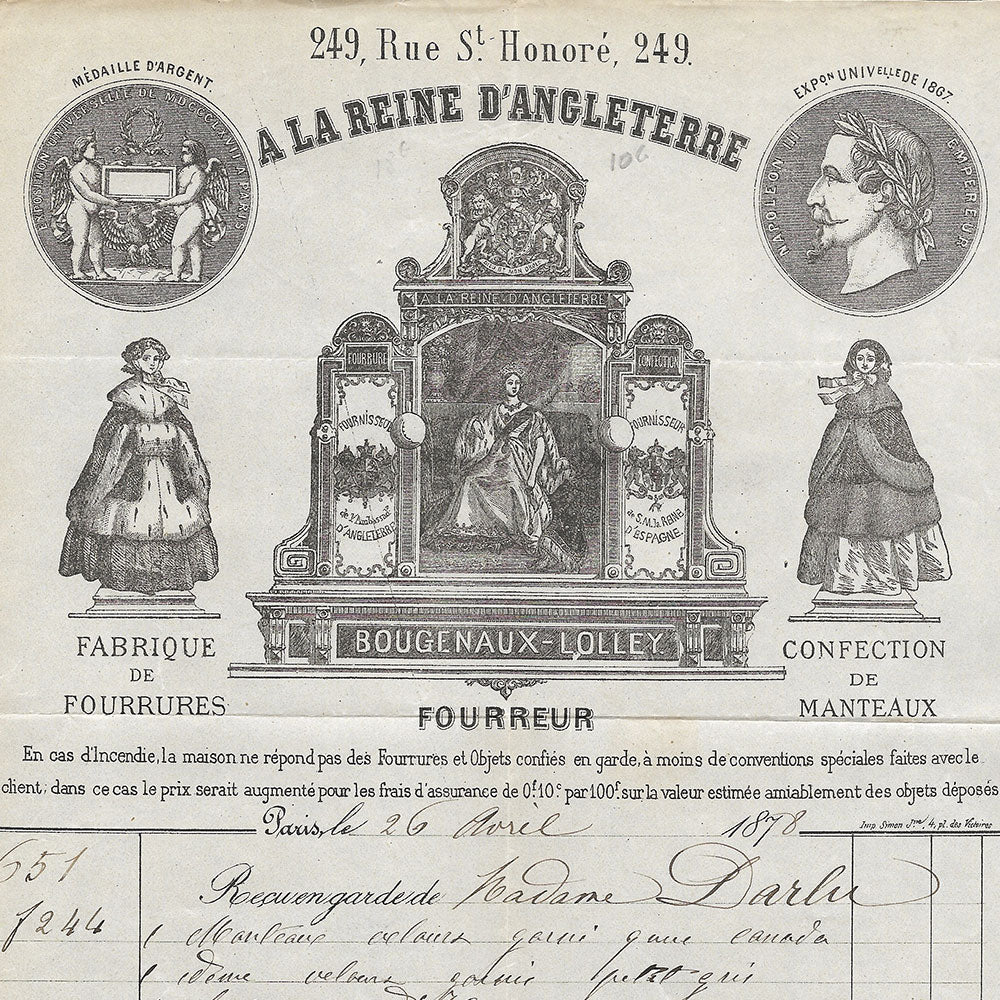 249, Rue St. Honoré, 249.
MÉDAILLE D'ARGENT.
EXPon UNIVelle DE 1867.
A LA REINE D'ANGLETERRE
EXPOSITION UNIVERSELLE DE MDCCCLXVII A PARIS
NAPOLEON III EMPEREUR
10c
106
A LA REINE D'ANGLETERRE
FOURRURE
CONFECTION
FOURNISSEUR
D'ANGLETERRE
FOURNISSEUR
de S.M. la REINE
D'ESPAGNE.
BOUGENAUX-LOLLEY
FABRIQUE
DE
FOURRURES
CONFECTION
DE
MANTEAUX
FOURREUR
En cas d'Incendie, la maison ne répond pas des Fourrures et Objets confiés en garde, à moins de conventions spéciales faites avec le
client; dans ce cas le prix serait augmenté pour les frais d'assurance de 0f.10c. par 100f. sur la valeur estimée amiablement des objets déposés
Paris, le 26 Avril 1878
Imp. Simon Jne, 4, pl. des Victoires
651
Reçu en garde de Madame Darlu
f 244
1 Manteau velours garni queue canada
1 idème velours garnie petit gris